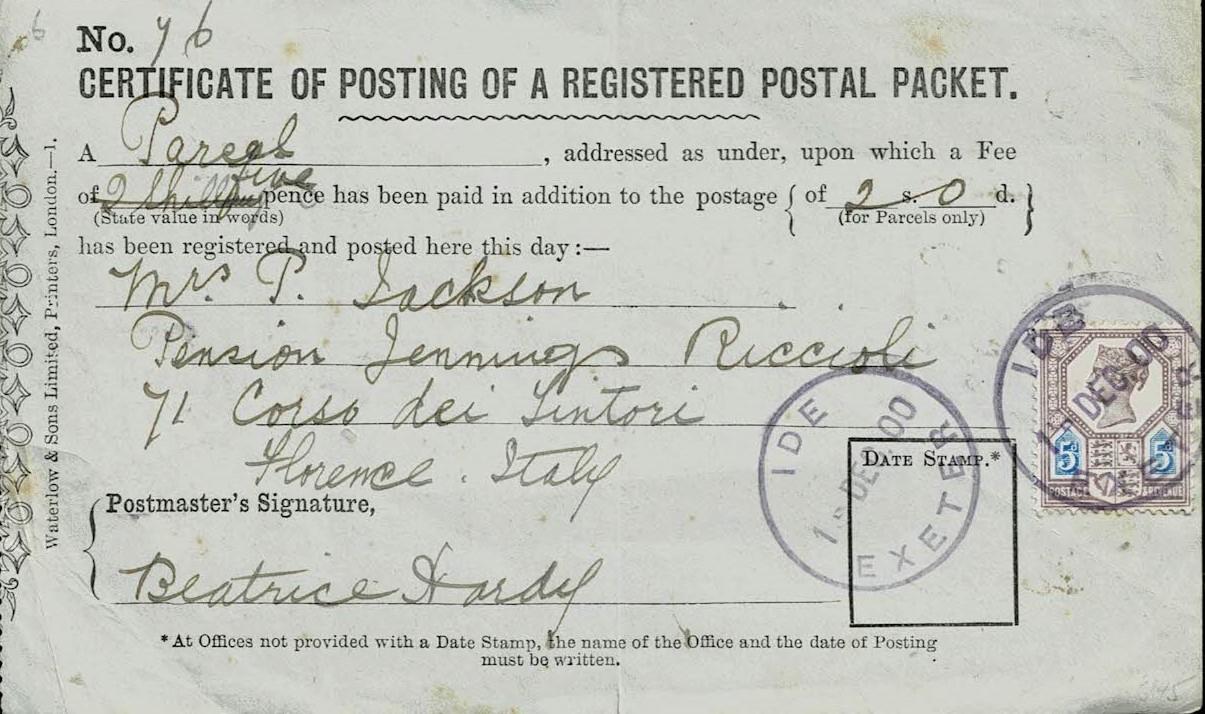 No. 76
CERTIFICATE OF POSTING OF A REGISTERED POSTAL PACKET.
A Parcel, addressed as under, upon which a Fee
of 2 Shillings five pence has been paid in addition to the postage { of 2 s. 0 d. }
(State value in words) (for Parcels only)
has been registered and posted here this day:—
Mrs. P. Jackson
Pension Jennings Riccioli
71 Corso dei Tintori
Florence. Italy
Postmaster's Signature,
Beatrice Hardy
DATE STAMP.*
IDE
DEC. 00
EXETER
IDE
DEC. 00
EXETER
5d 5d
POSTAGE & REVENUE
*At Offices not provided with a Date Stamp, the name of the Office and the date of Posting
must be written.
Waterlow & Sons Limited, Printers, London.—1.